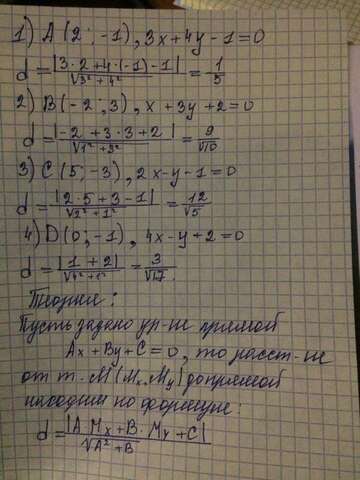 1) A(2; -1), 3x+4y-1=0
d = |3·2+4·(-1)-1| / √3²+4² = 1/5
2) B(-2; 3), x+3y+2=0
d = |-2+3·3+2| / √1²+3² = 9/√10
3) C(5; -3), 2x-y-1=0
d = |2·5+3-1| / √2²+1² = 12/√5
4) D(0; -1), 4x-y+2=0
d = |1+2| / √4²+1² = 3/√17
Теория:
Пусть задано ур-ие прямой
Ax+By+C=0, то расст-ие
от т. M(Mx, My) до прямой
находим по формуле:
d = |A Mx+B·My+C| / √A²+B